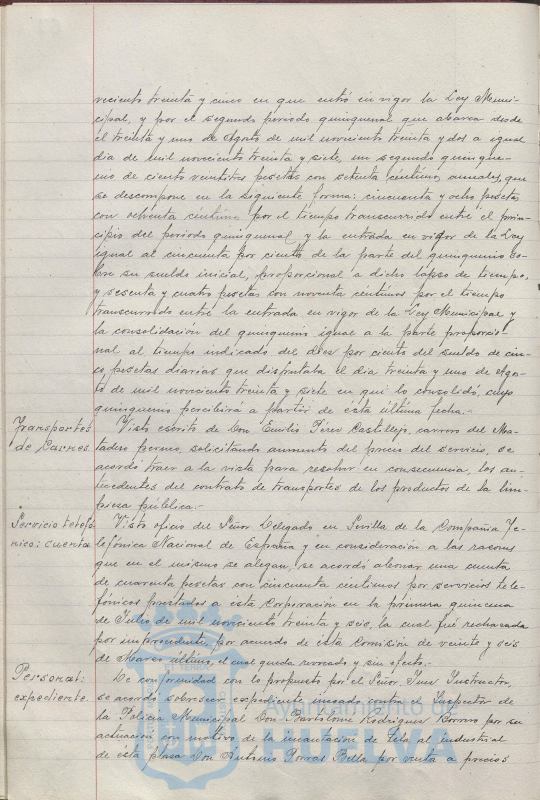 vecientos treinta y cinco en que entró en vigor la Ley Muni-
cipal, y por el segundo periodo quinquenal que abarca desde
el treinta y uno de Agosto de mil novecientos treinta y dos a igual
dia de mil novecientos treinta y siete, un segundo quinque-
nio de ciento veintitres pesetas con setenta céntimos anuales, que
se descompone en la siguiente forma: cincuenta y ocho pesetas
con ochenta céntimos por el tiempo transcurrido entre el prin-
cipio del periodo quinquenal y la entrada en vigor de la Ley
igual al cincuenta por ciento de la parte del quinquenio so-
bre su sueldo inicial, proporcional a dicho lapso de tiempo,
y sesenta y cuatro pesetas con noventa céntimos por el tiempo
transcurrido entre la entrada en vigor de la Ley Municipal y
la consolidación del quinquenio igual a la parte proporcio-
nal al tiempo indicado del diez por ciento del sueldo de cin-
co pesetas diarias que disfrutaba el dia treinta y uno de Agos-
to de mil novecientos treinta y siete en que lo consolidó, cuyo
quinquenio percibirá a partir de esta última fecha.-
Transportes
de Carnes.
Visto escrito de Don Emilio Pérez Castillejo, carrero del Ma-
tadero público, solicitando aumento del precio del servicio, se
acordó traer a la vista para resolver en consecuencia, los an-
tecedentes del contrato de transportes de los productos de la lim-
pieza pública.-
Servicio telefó-
nico: cuenta
Visto oficio del Señor Delegado en Sevilla de la Compañia Te-
lefónica Nacional de España y en consideración a las razones
que en el mismo se alegan, se acordó abonar una cuenta
de cuarenta pesetas con cincuenta céntimos por servicios tele-
fónicos prestados a esta Corporación en la primera quincena
de Julio de mil novecientos treinta y seis, la cual fué rechazada
por improcedente, por acuerdo de esta Comisión de veinte y seis
de Marzo último, el cual queda revocado y sin efecto.-
Personal:
expediente.
De conformidad con lo propuesto por el Señor Juez Instructor,
se acordó sobreseer expediente incoado contra el Inspector de
la Policia Municipal Don Bartolomé Rodriguez Borrero por su
actuación con motivo de la incautación de tela al industrial
de esta plaza Don Antonio Porras Bella por venta a precios
Ayuntamiento de
HUELVA